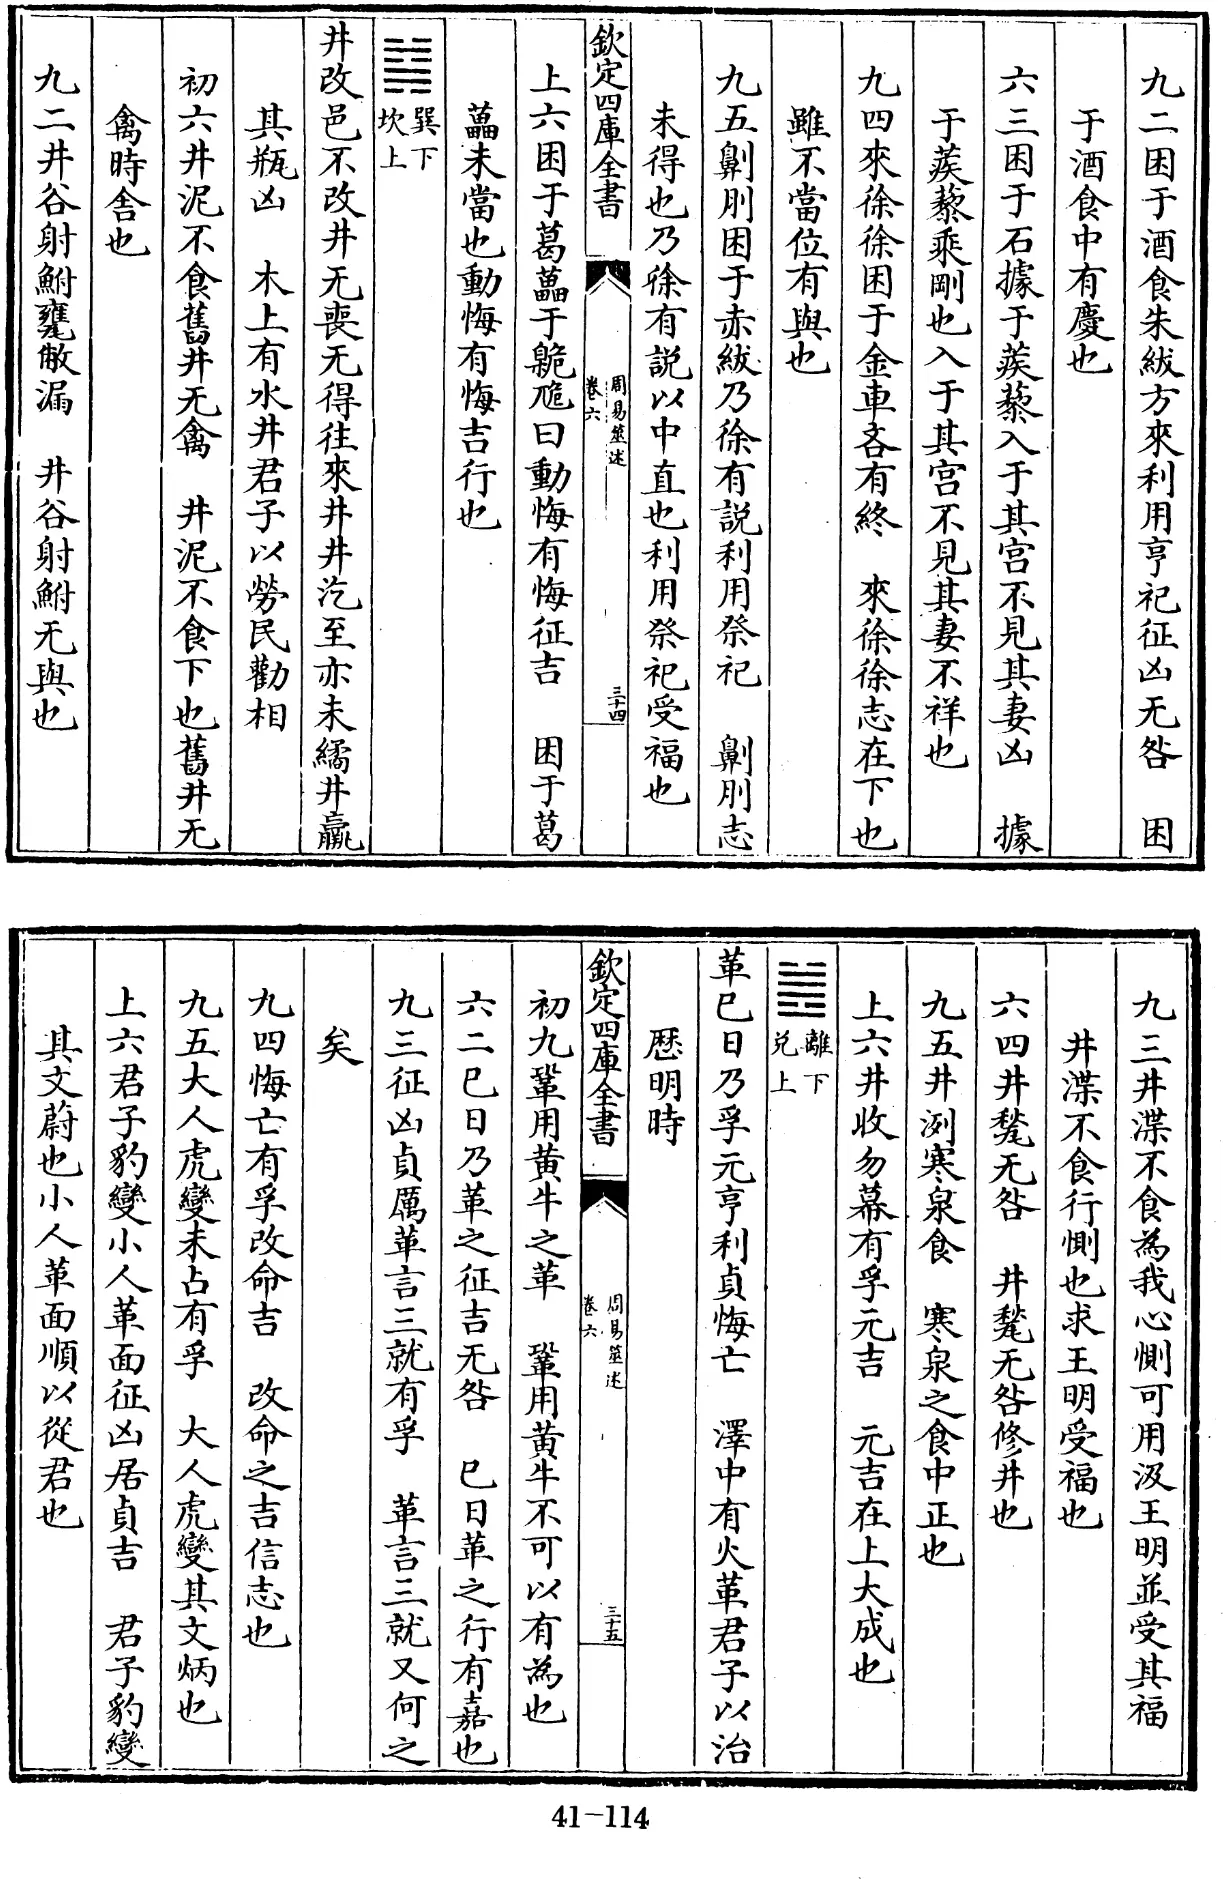 九二困于酒食朱紱方來利用亨祀征凶无咎　困
于酒食中有慶也
六三困于石據于蒺藜入于其宫不見其妻凶　據
于蒺藜乘剛也入于其宫不見其妻不祥也
九四來徐徐困于金車吝有終　來徐徐志在下也
雖不當位有與也
九五劓刖困于赤紱乃徐有説利用祭祀　劓刖志
未得也乃徐有説以中直也利用祭祀受福也
欽定四庫全書
周易筮述
卷六
三十四
上六困于葛藟于臲卼曰動悔有悔征吉　困于葛
藟未當也動悔有悔吉行也
䷯
巽下
坎上
井改邑不改井无喪无得往來井井汔至亦未繘井羸
其瓶凶　木上有水井君子以勞民勸相
初六井泥不食舊井无禽　井泥不食下也舊井无
禽時舍也
九二井谷射鮒甕敝漏　井谷射鮒无與也
九三井渫不食為我心惻可用汲王明並受其福
井渫不食行惻也求王明受福也
六四井甃无咎　井甃无咎修井也
九五井洌寒泉食　寒泉之食中正也
上六井收勿幕有孚元吉　元吉在上大成也
䷰
離下
兑上
革巳日乃孚元亨利貞悔亡　澤中有火革君子以治
厯明時
欽定四庫全書
周易筮述
卷六
三十五
初九鞏用黄牛之革　鞏用黄牛不可以有為也
六二巳日乃革之征吉无咎　巳日革之行有嘉也
九三征凶貞厲革言三就有孚　革言三就又何之
矣
九四悔亡有孚改命吉　改命之吉信志也
九五大人虎變未占有孚　大人虎變其文炳也
上六君子豹變小人革面征凶居貞吉　君子豹變
其文蔚也小人革面順以從君也
41-114